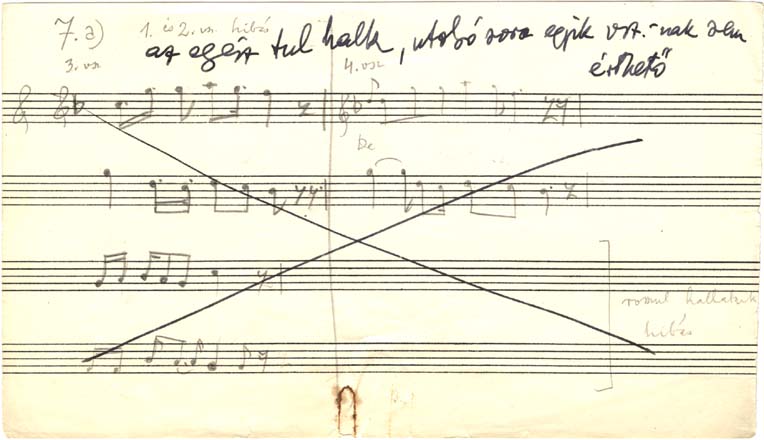 7. a) 1. és 2. vsz. hibás
az egész tul halk, utolsó sora egyik vsz.-nak sem
érthető
3. vsz. 4. vsz.
De
rosszul hallatszik
hibás